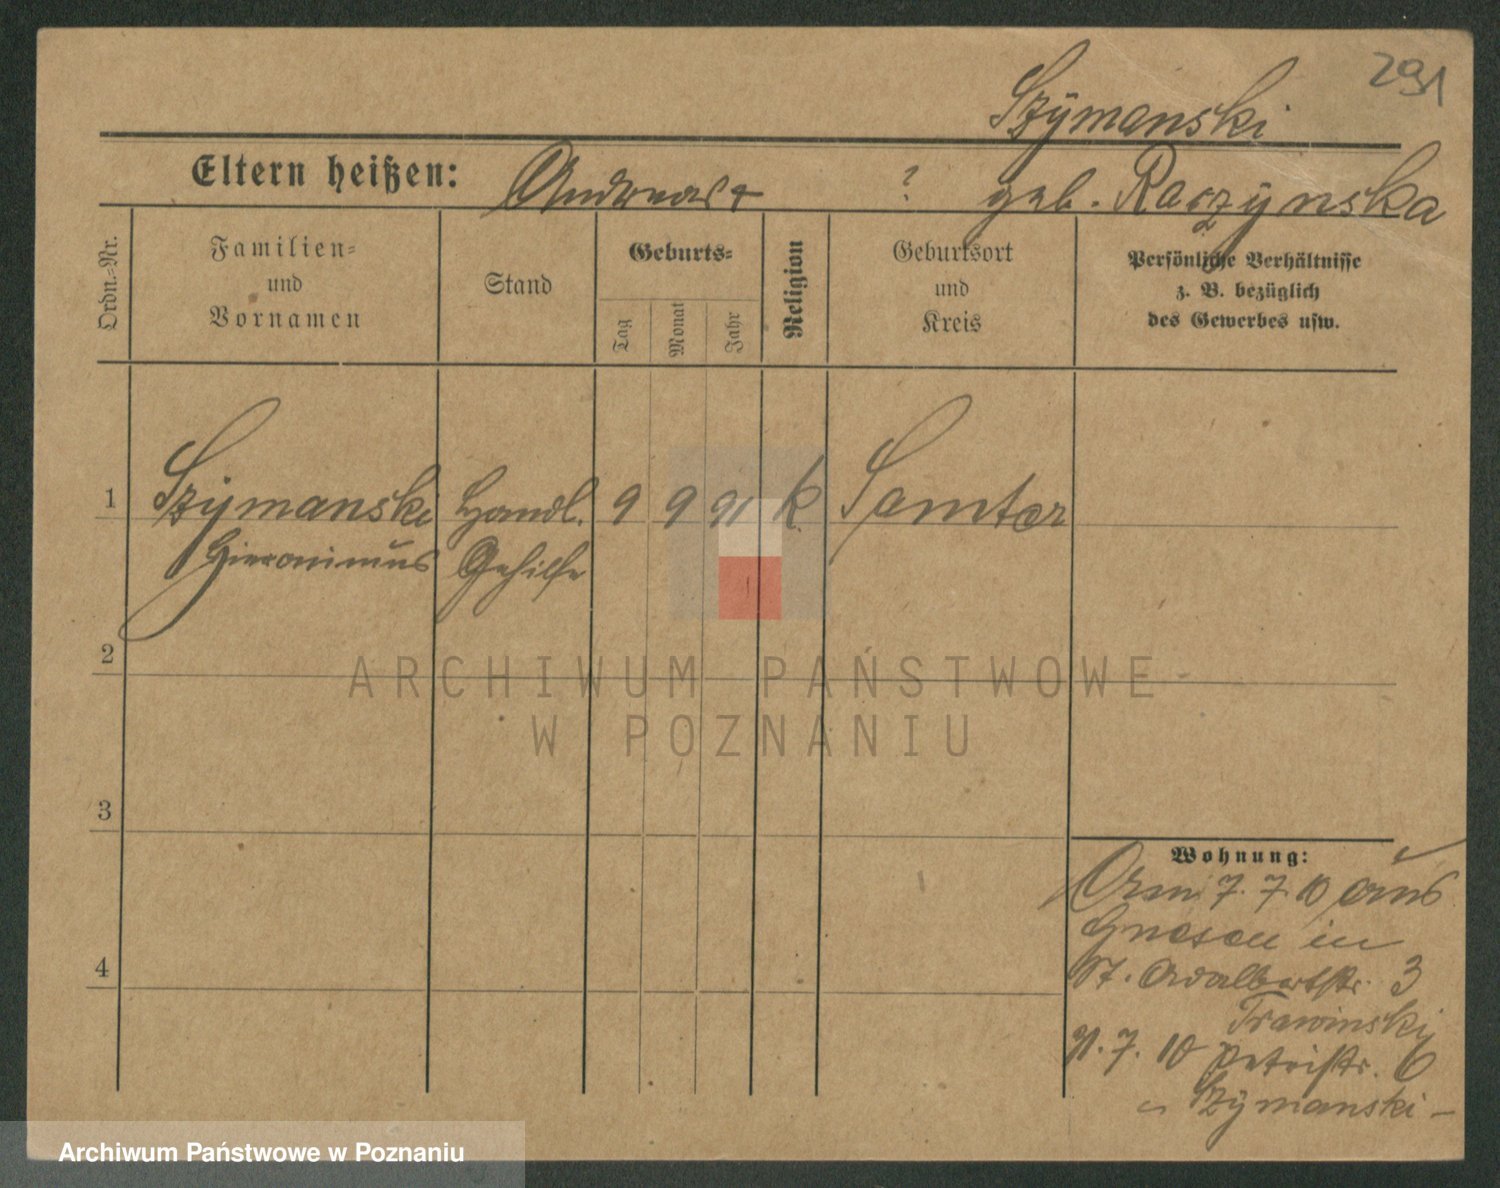 291
Szymanski
Eltern heißen: Andreas + ? geb. Raczynska
Ordn.=Nr.
Familien=
und
Vornamen
Stand
Geburts=
Tag
Monat
Jahr
Religion
Geburtsort
und
Kreis
Persönliche Verhältnisse
z. B. bezüglich
des Gewerbes usw.
1 Szymanski Handl. 9 9 91 k Samter
Hieronimus Gehilfe
2
ARCHIWUM PAŃSTWOWE
W POZNANIU
3
Wohnung:
7. 7. 10 aus
Gnesen in
St. Adalbertstr. 3
4
Trawinski
7. 10 Petristr. 6
Szymanski
Archiwum Państwowe w Poznaniu